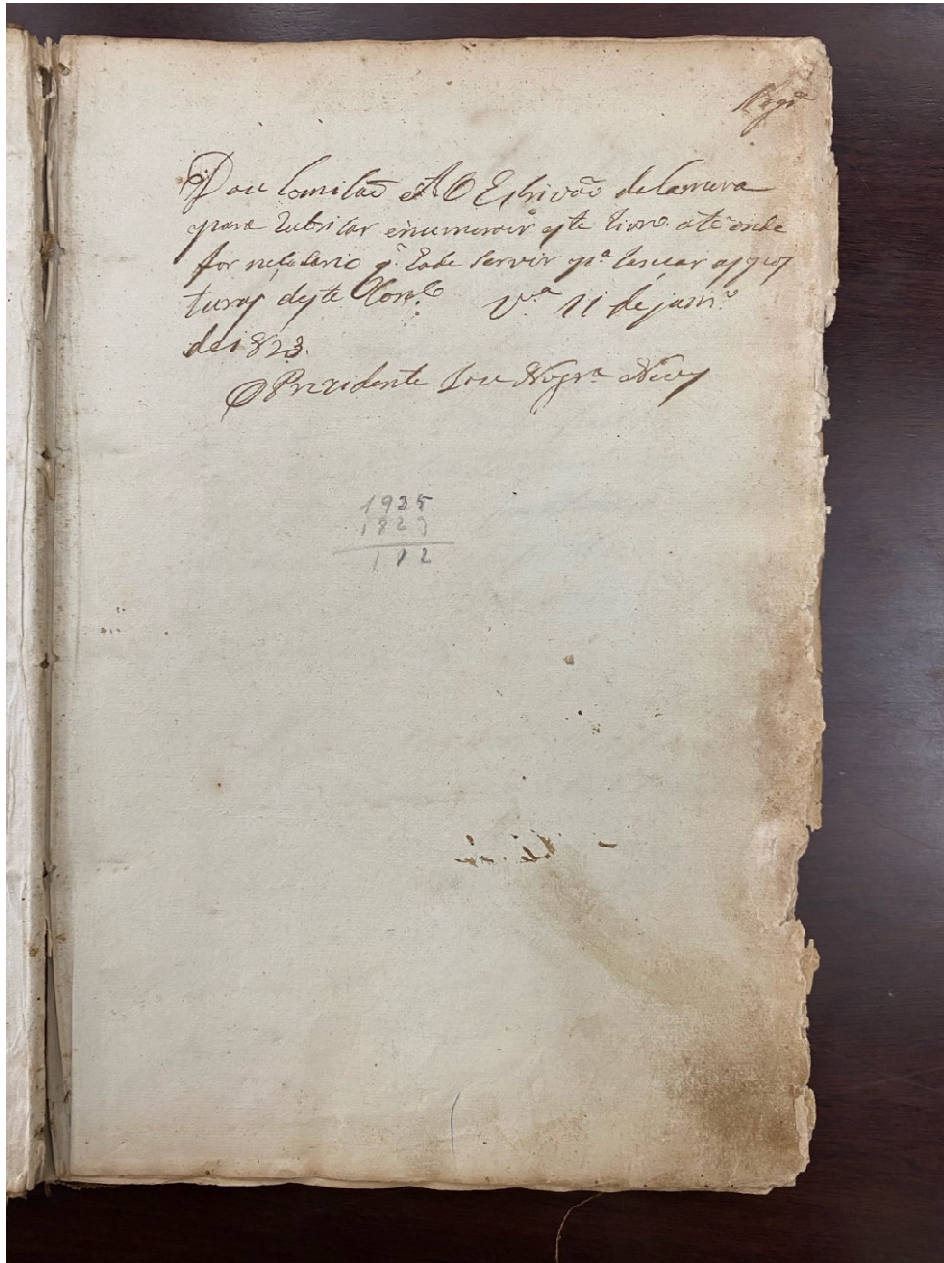 Dou Comisaõ AO Escrivão da Camera
para Rubricar enumerar este Livro até onde
for nececario q̃ hade servir p.ª lancar as pos
turas deste Con.cº V.ª 11 de jan.rº
de 1823.
O Prezidente Jose Nogr.ª Neves
1925
1823
102